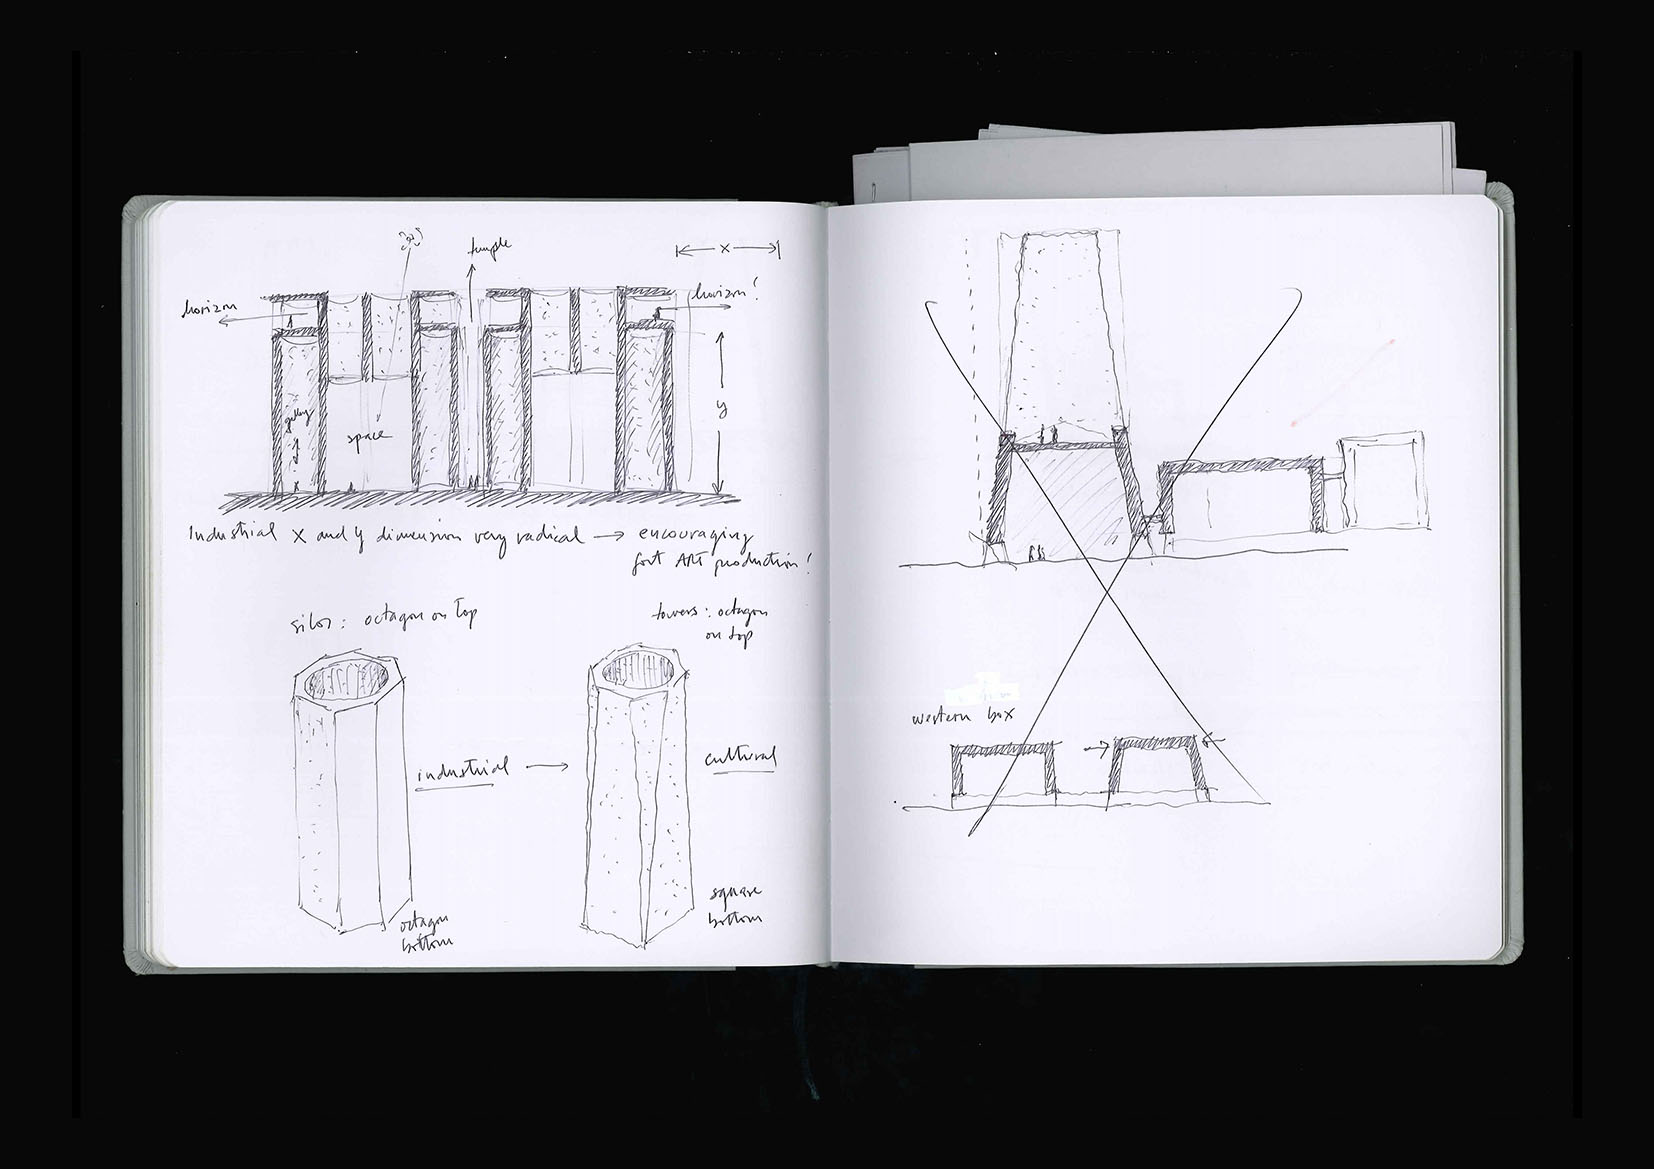 temple
x
horizon
horizon!
y
gallery
space
x
Industrial x and y dimension very radical → encouraging
for ART production!
silos: octagon on top
towers: octagon
on top
industrial →
cultural
octagon
bottom
square
bottom
western box